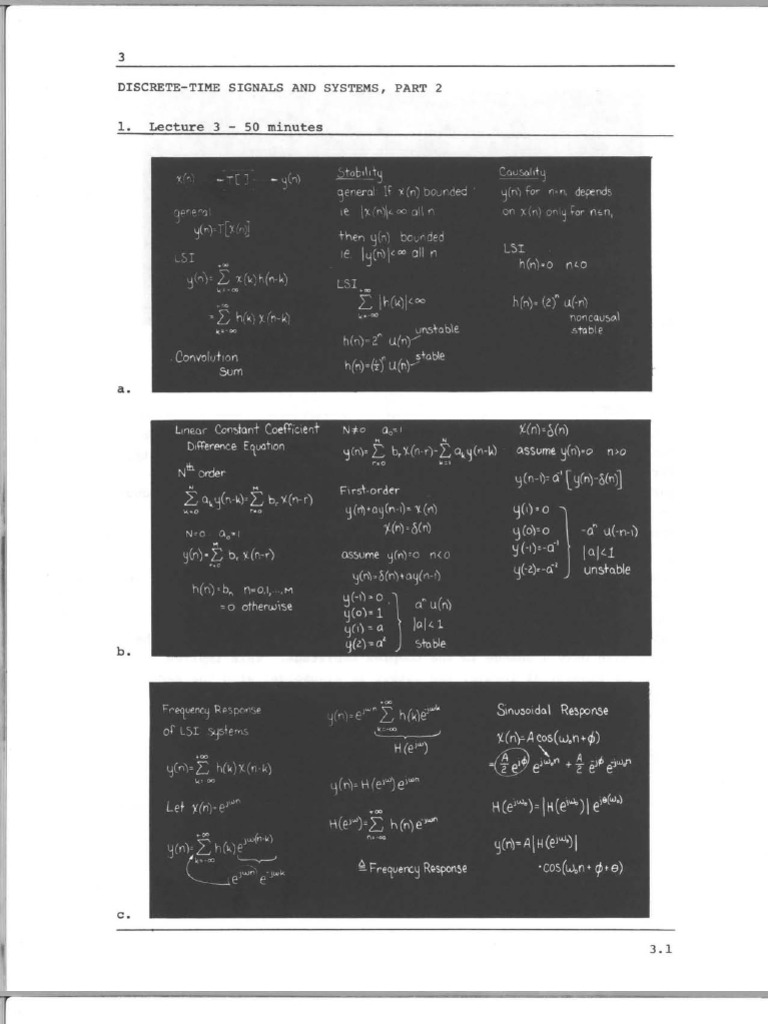 3
DISCRETE-TIME SIGNALS AND SYSTEMS, PART 2
1. Lecture 3 - 50 minutes
x(n) -T[ ] - y(n)
general
y(n)=T[x(n)]
LSI
y(n)= +∞ Σ k=-∞ x(k)h(n-k)
= +∞ Σ k=-∞ h(k)x(n-k)
Convolution
Sum
Stability
general If x(n) bounded
ie |x(n)|<∞ all n
then y(n) bounded
ie. |y(n)|<∞ all n
LSI
+∞ Σ k=-∞ |h(k)|<∞
h(n)=2ⁿ u(n) unstable
h(n)=(½)ⁿ u(n) stable
Causality
y(n) for n=n, depends
on x(n) only for n≤n,
LSI
h(n)=0 n<0
h(n)=(2)ⁿ u(-n)
noncausal
stable
a.
Linear Constant Coefficient
Difference Equation
Nth order
N Σ k=0 aₖy(n-k)= M Σ r=0 bᵣ x(n-r)
N=0 a₀=1
y(n)= M Σ r=0 bᵣ x(n-r)
h(n)=bₙ n=0,1,...,M
=0 otherwise
N≠0 a₀=1
y(n)= M Σ r=0 bᵣ x(n-r)- N Σ k=1 aₖy(n-k)
First-order
y(n)+ay(n-1)=x(n)
x(n)=δ(n)
assume y(n)=0 n<0
y(n)=δ(n)+ay(n-1)
y(-1)=0
y(0)=1
y(1)=a
y(2)=a²
aⁿ u(n)
|a|<1
stable
x(n)=δ(n)
assume y(n)=0 n>0
y(n-1)=a⁻¹[y(n)-δ(n)]
y(1)=0
y(0)=0
y(-1)=-a⁻¹
y(-2)=-a⁻²
-aⁿ u(-n-1)
|a|<1
unstable
b.
Frequency Response
of LSI systems
y(n)= +∞ Σ k=-∞ h(k)x(n-k)
Let x(n)=e^{jωn}
y(n)= +∞ Σ k=-∞ h(k)e^{jω(n-k)}
e^{jωn} e^{-jωk}
y(n)=e^{jωn} +∞ Σ k=-∞ h(k)e^{-jωk}
H(e^{jω})
y(n)=H(e^{jω})e^{jωn}
H(e^{jω})= +∞ Σ n=-∞ h(n)e^{-jωn}
≜ Frequency Response
Sinusoidal Response
x(n)=A cos(ω₀n+φ)
=(A/2 e^{jφ}) e^{jω₀n} + A/2 e^{-jφ} e^{-jω₀n}
H(e^{jω₀})=|H(e^{jω₀})| e^{jθ(ω₀)}
y(n)=A|H(e^{jω₀})|
·cos(ω₀n+φ+θ)
c.
3.1